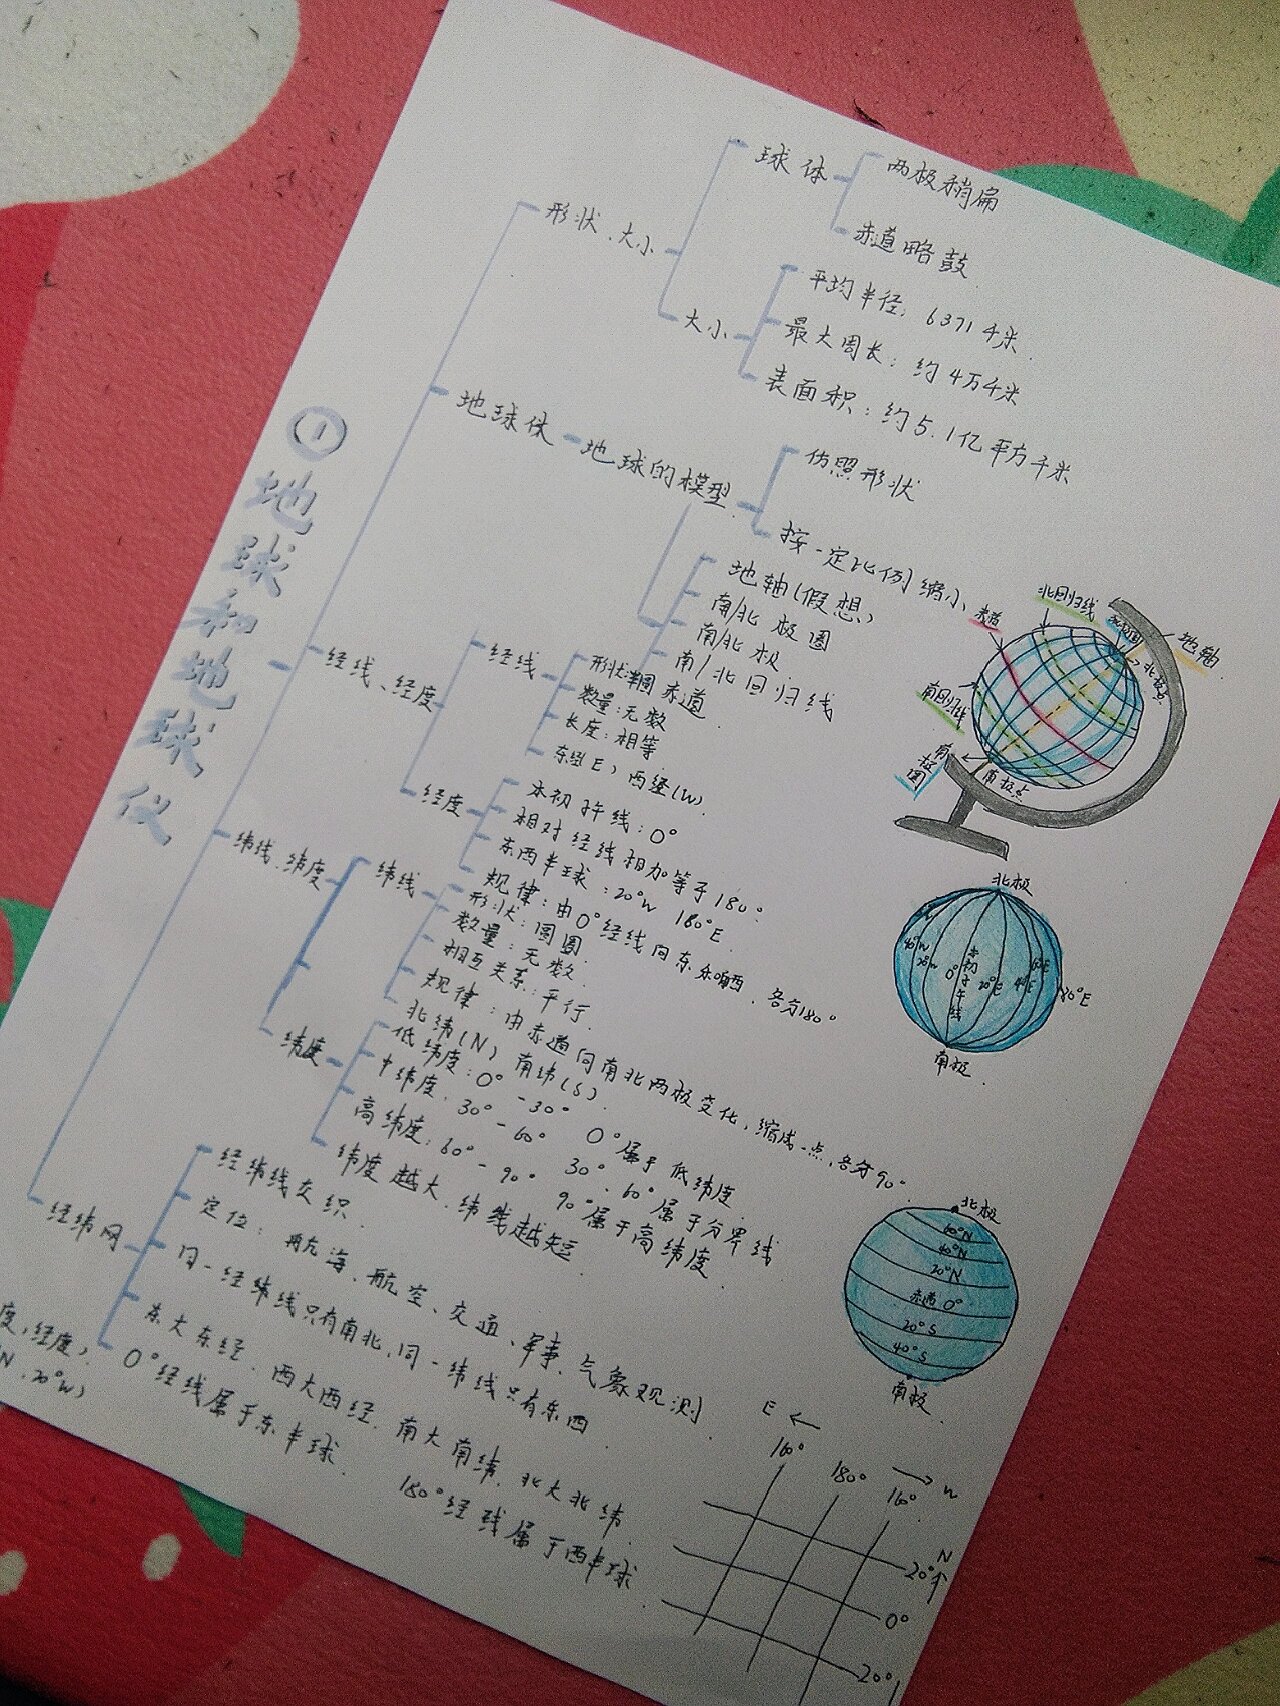 ① 地球和地球仪
形状、大小
球体
两极稍扁
赤道略鼓
大小
平均半径:6371千米
最大周长:约4万千米
表面积:约5.1亿平方千米
地球体
地球的模型
仿照形状
按一定比例缩小
地轴(假想)
南/北极圈
南/北极
南/北回归线
赤道
经线、经度
经线
形状:半圆
数量:无数
长度:相等
东经(E)西经(W)
经度
本初子午线:0°
相对经线相加等于180°
东西半球:20°W 180°E
规律:由0°经线向东 西,各分180°
纬线、纬度
纬线
形状:圆圈
数量:无数
相互关系:平行
规律:由赤道向南北两极变化,缩成一点,各分90°
纬度
北纬(N)南纬(S)
低纬度:0°-30° 0°属于低纬度
中纬度:30°-60° 30°、60°属于分界线
高纬度:60°-90° 90°属于高纬度
纬度越大,纬线越短
经纬网
经纬线交织
定位:航海、航空、交通、军事、气象观测
同一经纬线只有南北,同一纬线只有东西
东大东经,西大西经,南大南纬,北大北纬
0°经线属于东半球
180°经线属于西半球
度,经度)
N,20°W)
赤道
北回归线
北极圈
地轴
北极点
南回归线
南极圈
南极点
北极
40°W
20°W
0°
本初子午线
20°E
40°E
60°E
80°E
南极
北极
60°N
40°N
20°N
赤道0°
20°S
40°S
南极
E ←
160°
180°
→ W
160°
N ↑
20°
0°
20°